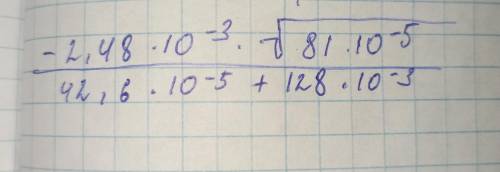 -2,48 · 10⁻³ · √81 · 10⁻⁵
42,6 · 10⁻⁵ + 128 · 10⁻³